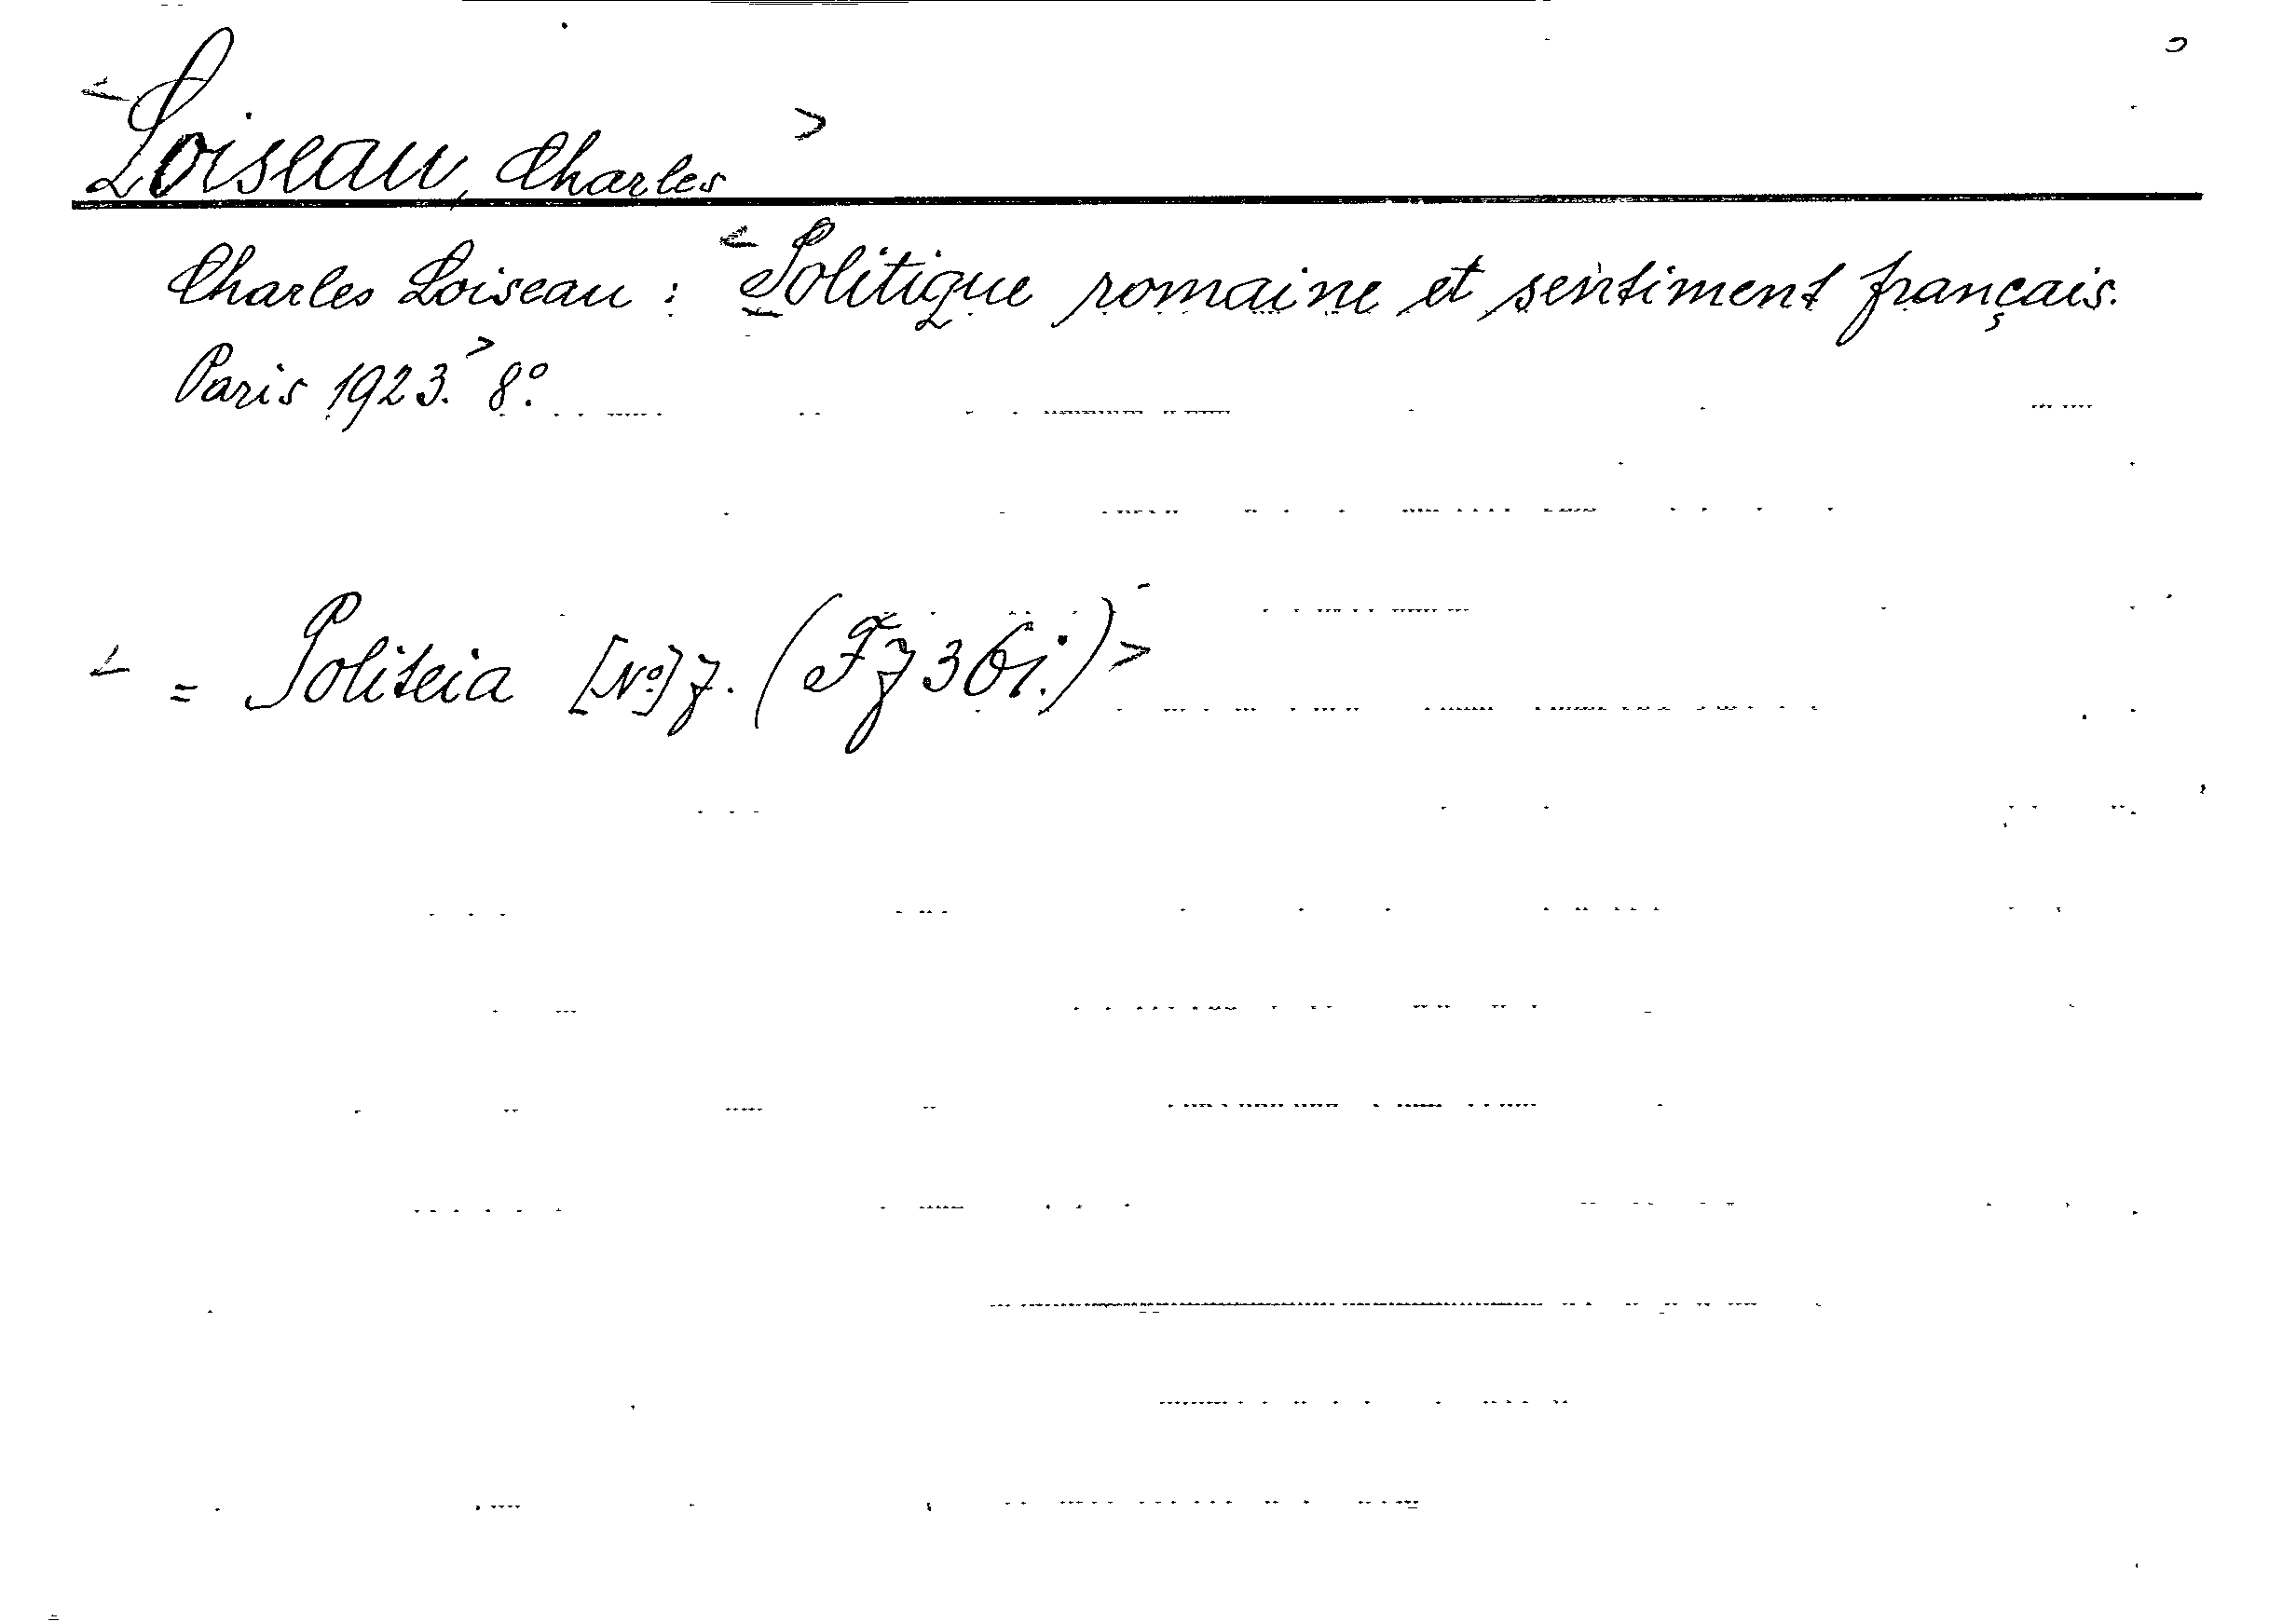 <Loiseau, Charles>
Charles Loiseau : <Politique romaine et sentiment français.
Paris 1923.> 8º.
< = Politeia [Nº] 7. (Fz 36i.)>